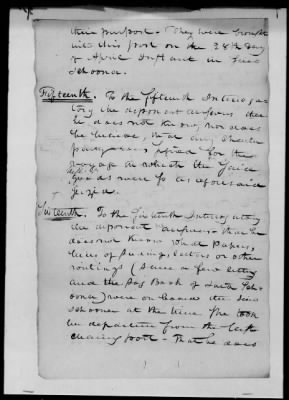 their purport - They were brought
into this port on the 28th day
of April Instant in said
Schooner.
Fifteenth. To the fifteenth Interrogatory
the deponent answers that
he does not know nor does
he believe, that any
passports for the
voyage on which the said
goods were so as aforesaid
seized.
Sixteenth. To the Sixteenth Interrogatory
the deponent answers that he
does not know what papers,
bills of lading, letters or other
writings (save a few letters
and the Log Book of said Schooner)
were on board the said
schooner at the time she took
her departure from the last
clearing port - that he does